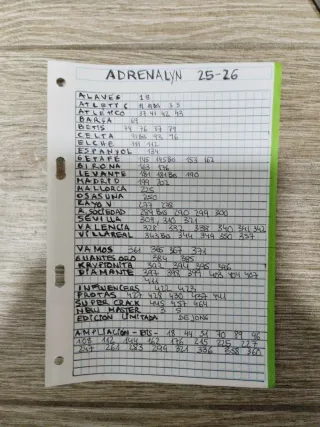 ADRENALYN 25-26
ALAVÉS 18
ATLETIC
ATLETICO 37 41 42 43
BARÇA 64
BETIS 74 76 77 79
CELTA 93 96
ELCHE 111 112
ESPANYOL 134
GETAFE 145 145 Bis 153 162
GIRONA 163 176
LEVANTE 181 181 Bis 190
MADRID 199 202
MALLORCA 225
OSASUNA 250
RAYO V 237 238
R. SOCIEDAD 289 Bis 290 299 300
SEVILLA 309 310 321
VALENCIA 328 332 338 340 341 342
VILLAREAL 343 Bis 344 349 350 357
VAMOS 361 365 367 371
GUANTES ORO 384 385
KRYPTONITA 394 395 396
DIAMANTE 397 398 399 403 404 407
411
INFLUENCERS 422 423
PROTAS 427 428 430 437 441
SUPER CRACK 445 457 464
NEW MASTER 3 5
EDICION LIMITADA DE JONG
AMPLIACIÓN - BIS - 18 44 51 70 89 96
108 112 144 162 176 215 225 227
247 261 283 299 321 336 358 360